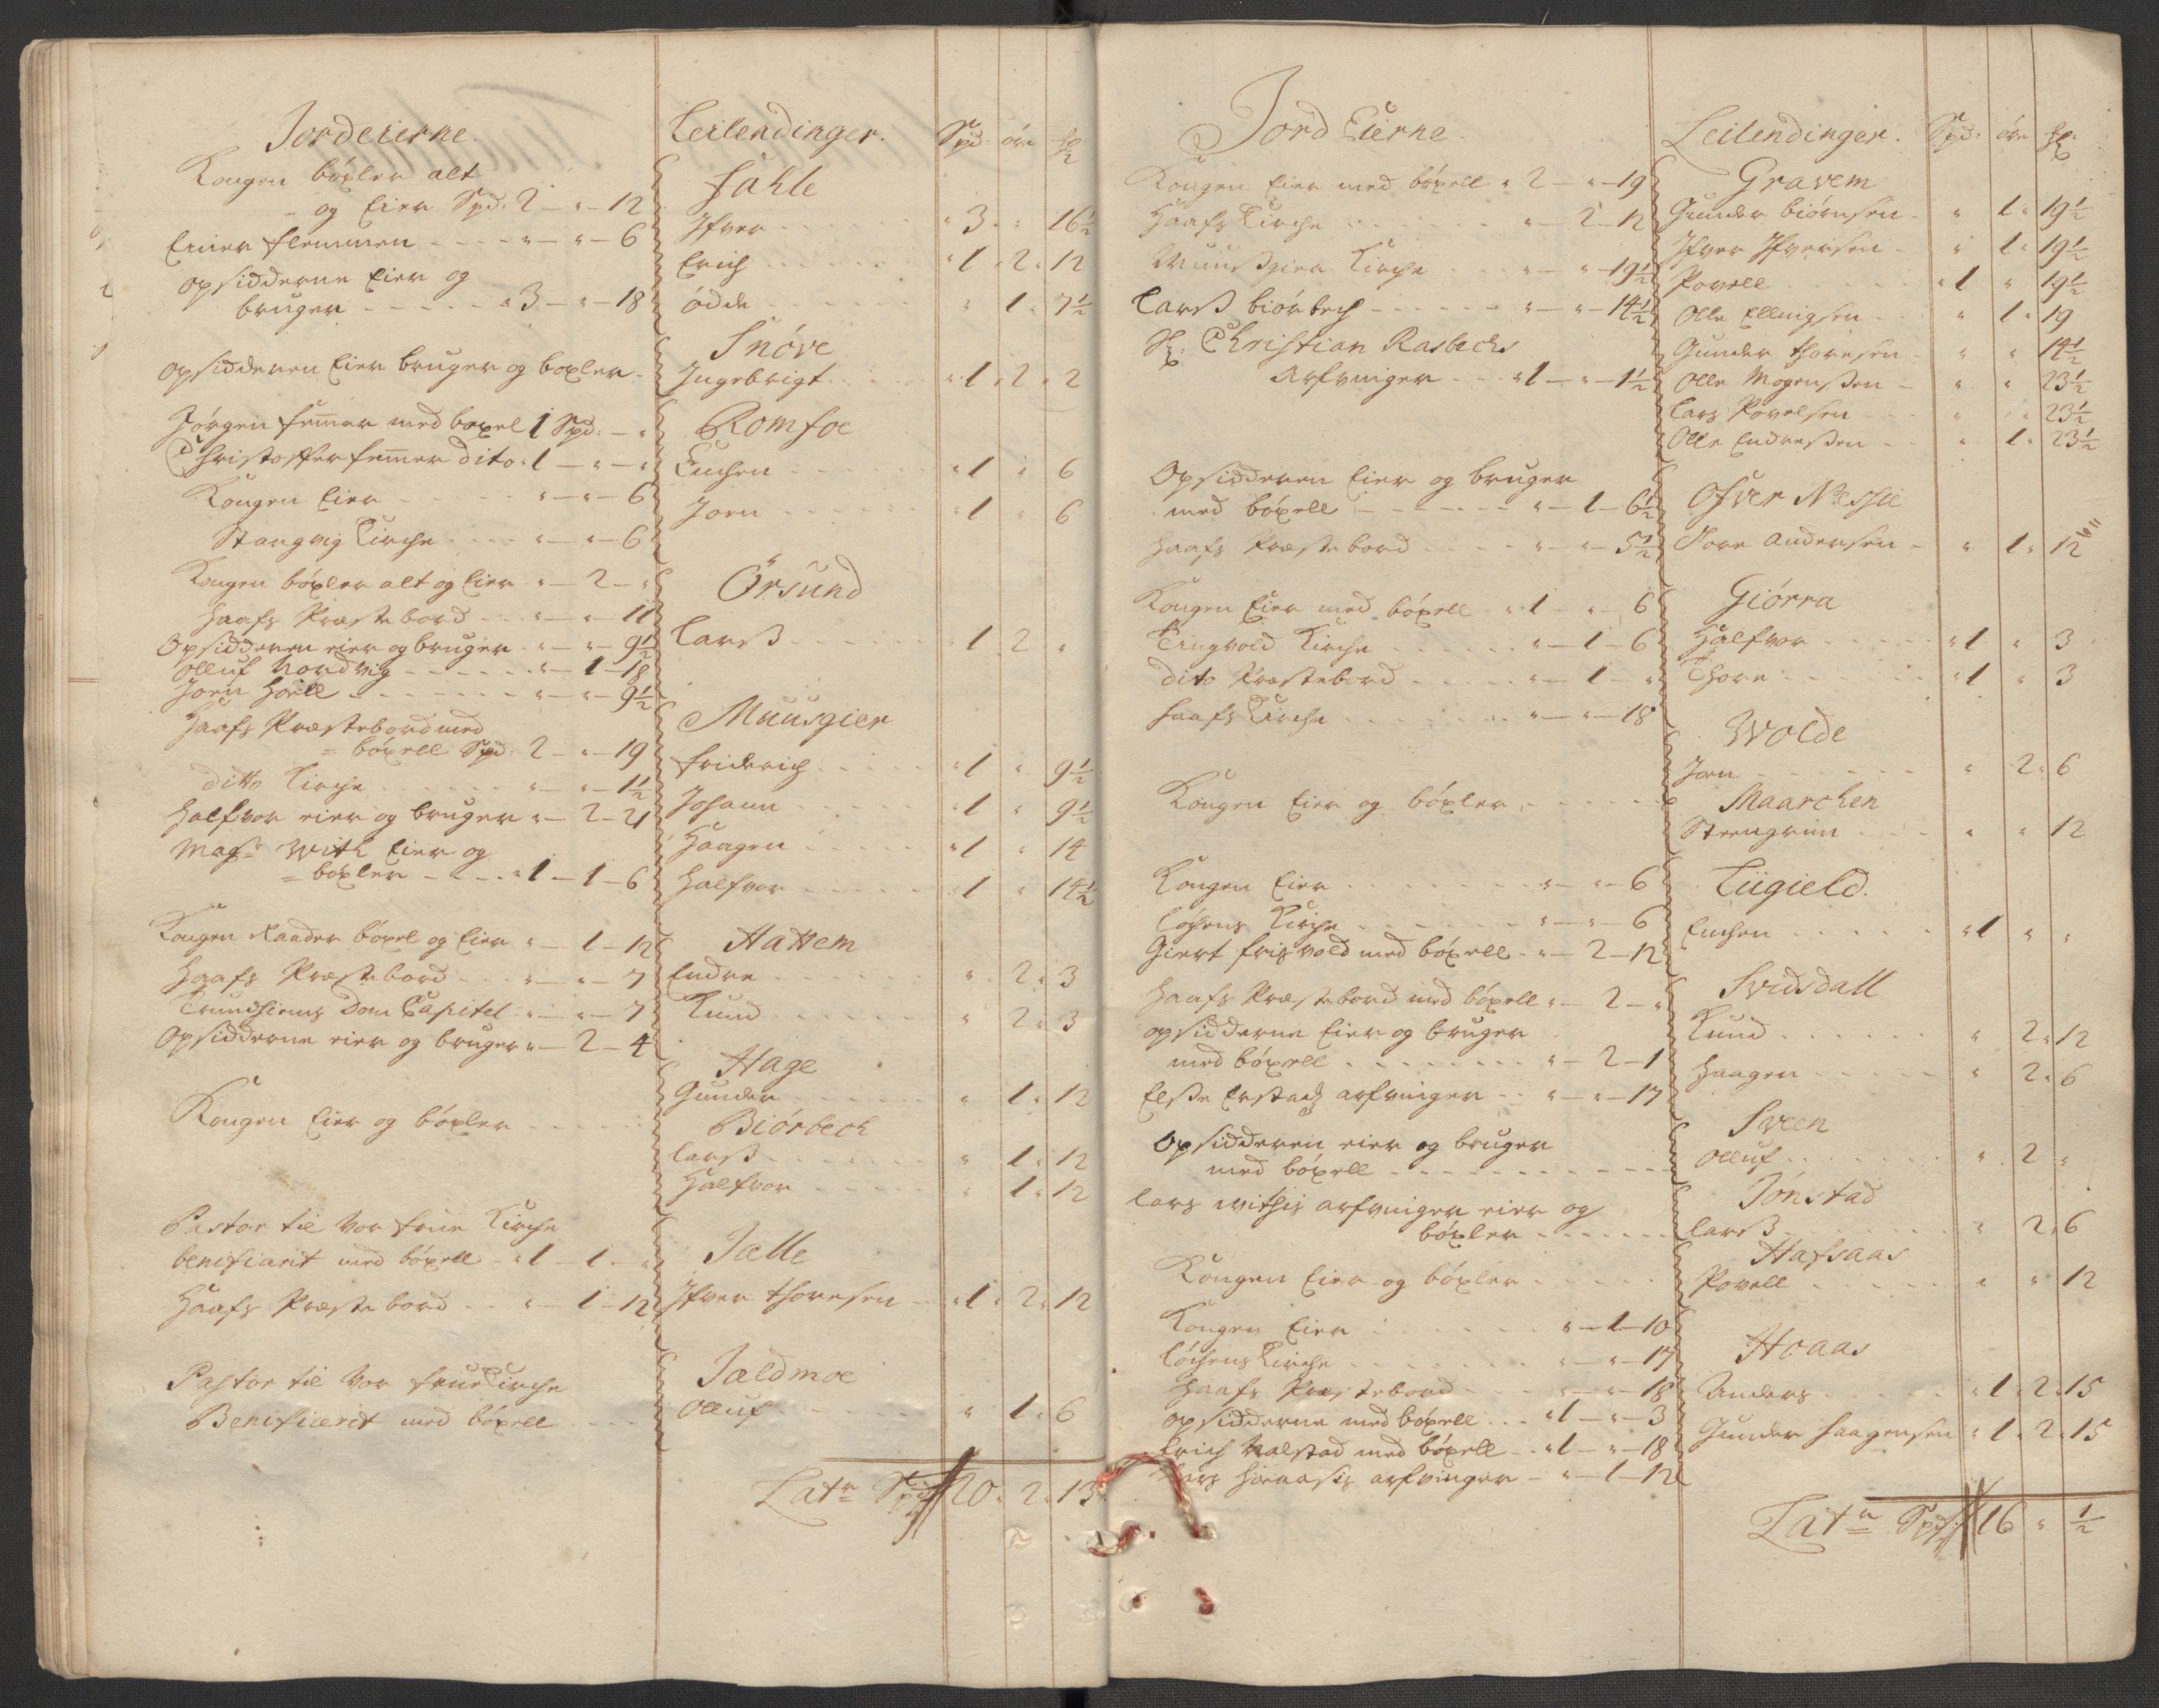 Jordeierne.
Kongen böxler alt
og Eier Spd: 2 — " — 12
Einer flemmen - - - " — " — 6
opsidderne Eier og
bruger - - - - - " 3 — " — 18
opsidderen Eier bruger og boxler -
Jörgen femmer med boxel 1 Spd: — "
Christoffer femmer dito " 1 — " — "
Kongen Eier - - - - - " — " — 6
Stangvig Kirche - - - " — " — 6
Kongen böxler alt og Eier " — 2 — "
Haafs Præstebord - - - " — " — 11
Opsidderen eier og bruger " — " — 9½
olluf Nordvig - - - - - " — 1 — 18
Jorn Hoell - - - - - - " — " — 9½
Haafs Præstebord med
= böxell Spd: 2 — " — 19
ditto Kirche - - - - - " — " — 1½
Halfvor eier og bruger " — 2 — 21
Magr: With Eier og
= böxler - - - - " 1 — 1 — 6
Kongen Raader böxel og Eier " — 1 — 12
Haafs Præstebord - - - " — " — 7
Trundhiems Dom Capitel - " — " — 7
Opsidderne eier og bruger " — 2 — 4
Kongen Eier og böxler - - - - -
Pastor til Vor frue Kirche
benificerit med böxell - " 1 — 1 - "
Haafs Præstebord - - " — 1 — 12
Pastor til Vor frue Kirche
Benificerit med böxell - - -
Leilendinger. Spd: öre
fahle
Ifver - - - - - " 3 " 16½
Erich - - - - - " 1 " 2 " 12
odde - - - - - " 1 " 7½
Snöve
Ingebrigt - - - - " 1 " 2 " 2
Romfoe
Einchen - - - - " 1 " 6
Jorn - - - - - " 1 " 6
Örsund
Larss - - - - - " 1 " 2 "
Muusgier
friderich - - - - " 1 " 9½
Johann - - - - " 1 " 9½
Haagen - - - - " 1 " 14
Halfvor - - - - " 1 " 14½
Hattem
Endre - - - - - " 2 " 3
Knud - - - - - " 2 " 3
Hage
Gunder - - - - " 1 " 12
Biörbech
Larss - - - - - " 1 " 12
Halfvor - - - - " 1 " 12
Jælle
Ifver thoresen - - " 1 " 2 " 12
Jældmoe
olluf - - - - - " 1 " 6
Latr Spd 20 " 2 " 13
Jord Eierne
Kongen Eier med böxell " 2 — " — 19
Haafs Kirche - - - - " — 2 — 12
Muusgier Kirche - - " — " — 19½
Larss biörbech - - - - " — " — 14½
Sl: Christian Rasbechs
Arfvinger - - - " 1 — " — 1½
Opsidderen Eier og bruger
med böxell - - - - - " — 1 — 6½
Haafs Præstebord - - - " — " — 5½
Kongen Eier med böxell - " 1 — " — 6
Tingvold Kirche - - - - " — 1 — 6
dito Præstebord - - - - " — 1 — "
Haafs Kirche - - - - - " — " — 18
Kongen Eier og böxler - - - - -
Kongen Eier - - - - - " — " — 6
Löchens Kirche - - - - " — " — 6
Giert frisvold med böxell - " — 2 — 12
Haafs Præstebord med böxell " — 2 — "
opsidderne Eier og bruger
med böxell - - - - - " — 2 — 1
Else Erstads arfvinger - - " — " — 17
Opsidderen eier og bruger
med böxell - - - - - - - -
Lars withis arfvinger eier og
böxler - - - - - -
Kongen Eier og böxler - - - - -
Kongen Eier - - - - - " — 1 — 10
Löchens Kirche - - - - " — " — 17
Haafs Præstebord - - - " — " — 18
opsidderne med böxell - - " 1 — " — 3
Erich Valstad med böxell - - " 1 — " — 18
arfvinger - " — 1 — 12
Leilendinger. Spd: öre
Gravem
Gunder biörnsen - " 1 " 19½
Ifver Ifversen - " 1 " 19½
Povell - - - - - " 1 " 19½
Olle Ellingsen - - " 1 " 19
Gunder thoresen - " " 14½
Olle Mogenssen - " " 23½
Lars Povelsen - - " " 23½
Olle Endressen - - " 1 " 23½
Ofver Nessie
Tore andersen - " 1 " 12
Giörra
Halfvor - - - - " 1 " 3
Thore - - - - - " 1 " 3
Wolde
Jorn - - - - - " 2 " 6
Maarchen
Steengrim - - - " " 12
Tiigield.
Einchen - - - - " 1 " "
Svidsdall
Knud - - - - - " 2 " 12
Haagen - - - - " 2 " 6
Sveen
olluf - - - - - " 2 "
Jonstad
Larss - - - - - " 2 " 6
Hafsaas
Povell - - - - " " 12
Hoaas
Anders - - - - " 1 " 2 " 15
Gunder Haagensen " 1 " 2 " 15
Latr Spd 16 " ½